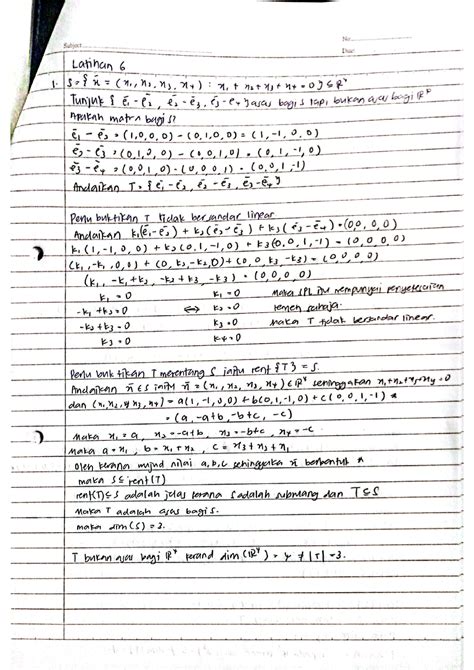 No:
Subject
Date:
Latihan 6
1. S = { x̄ = (x₁, x₂, x₃, x₄) : x₁ + x₂ + x₃ + x₄ = 0 } ⊆ ℝ⁴
Tunjuk { ē₁ - ē₂, ē₂ - ē₃, ē₃ - ē₄ } asas bagi S tapi bukan asas bagi ℝ⁴
Apakah matra bagi S?
ē₁ - ē₂ = (1,0,0,0) - (0,1,0,0) = (1,-1,0,0)
ē₂ - ē₃ = (0,1,0,0) - (0,0,1,0) = (0,1,-1,0)
ē₃ - ē₄ = (0,0,1,0) - (0,0,0,1) = (0,0,1,-1)
Andaikan T = { ē₁ - ē₂, ē₂ - ē₃, ē₃ - ē₄ }
Perlu buktikan T tidak bersandar linear
Andaikan k₁(ē₁ - ē₂) + k₂(ē₂ - ē₃) + k₃(ē₃ - ē₄) = (0,0,0,0)
k₁(1,-1,0,0) + k₂(0,1,-1,0) + k₃(0,0,1,-1) = (0,0,0,0)
(k₁,-k₁,0,0) + (0,k₂,-k₂,0) + (0,0,k₃,-k₃) = (0,0,0,0)
(k₁, -k₁+k₂, -k₂+k₃, -k₃) = (0,0,0,0)
k₁ = 0 k₁ = 0 Maka SPL itu mempunyai penyelesaian
-k₁ + k₂ = 0 ⇔ k₂ = 0 remeh sahaja.
-k₂ + k₃ = 0 k₃ = 0 Maka T tidak bersandar linear.
-k₃ = 0 k₄ = 0
Perlu buktikan T merentang S iaitu rent {T} = S.
Andaikan x̄ ∈ S iaitu x̄ = (x₁, x₂, x₃, x₄) ∈ ℝ⁴ sehinggakan x₁+x₂+x₃+x₄ = 0
dan (x₁, x₂, x₃, x₄) = a(1,-1,0,0) + b(0,1,-1,0) + c(0,0,1,-1) *
= (a, -a+b, -b+c, -c)
Maka x₁ = a, x₂ = -a+b, x₃ = -b+c, x₄ = -c
Maka a = x₁, b = x₁ + x₂, c = x₃ + x₂ + x₁
Oleh kerana wujud nilai a,b,c sehinggaka x̄ berbentuk *
maka S ⊆ rent(T)
rent(T) ⊆ S adalah jelas kerana S adalah subruang dan T ⊆ S
Maka T adalah asas bagi S.
maka dim(S) = 3.
T bukan asas bagi ℝ⁴ kerana dim(ℝ⁴) = 4 ≠ |T| = 3.